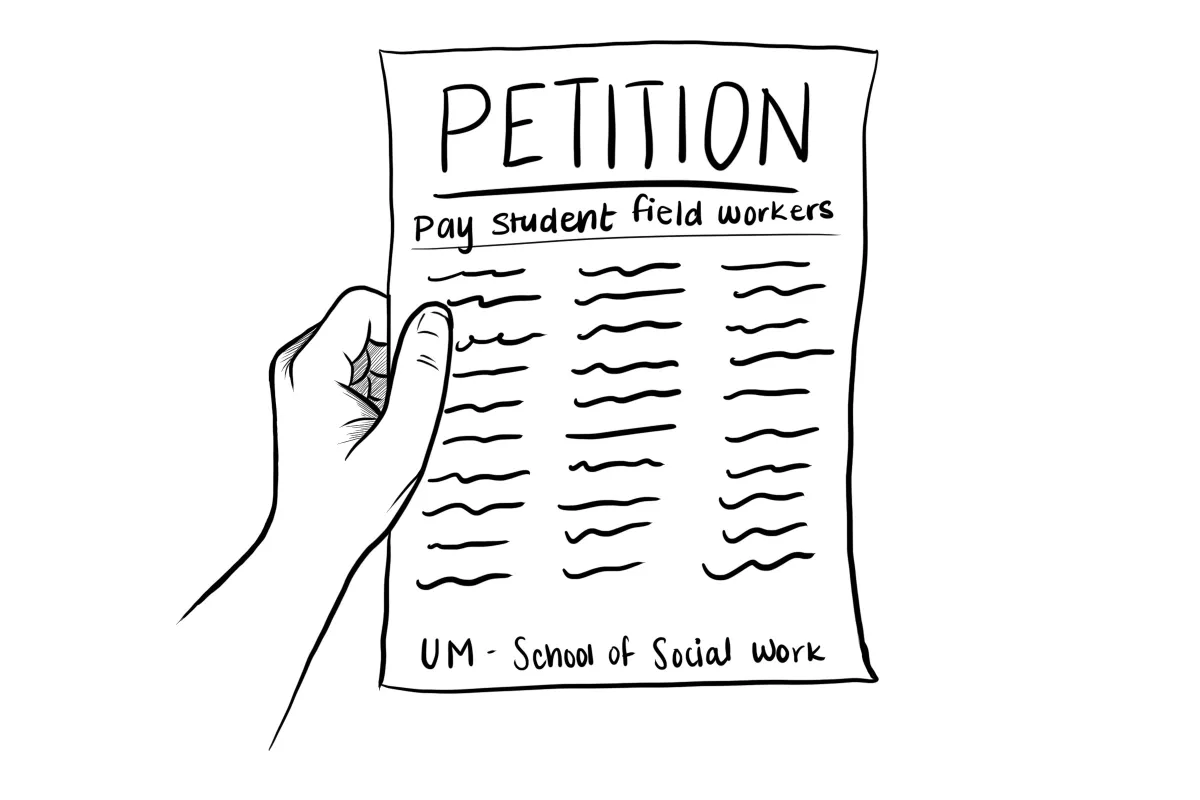 PETITION
Pay student field workers
UM - School of Social Work